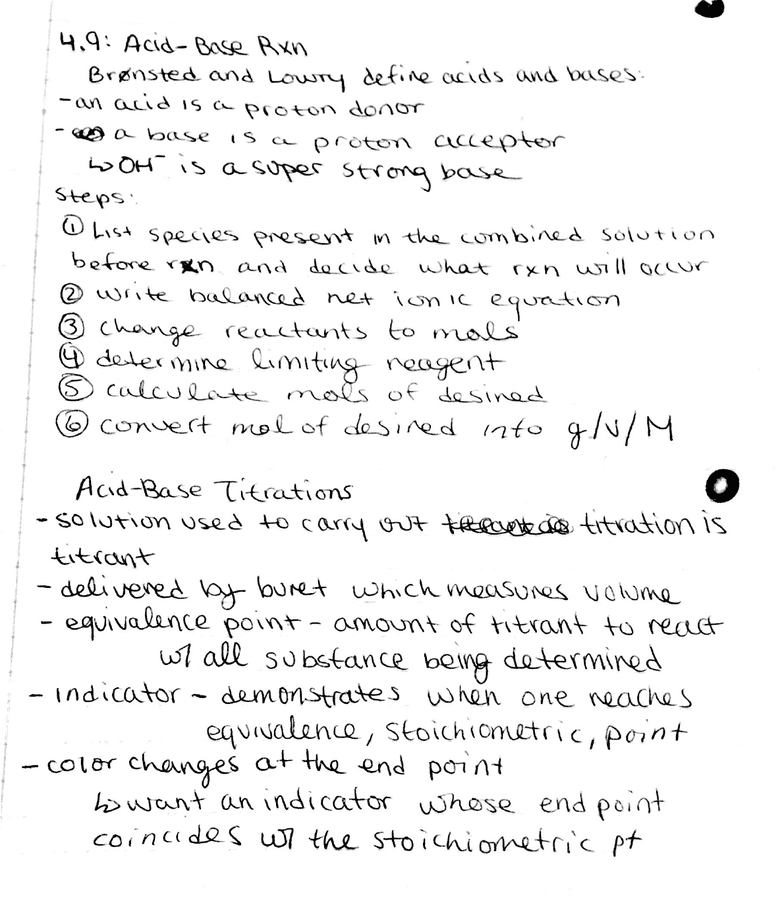 4.9: Acid-Base Rxn
Brønsted and Lowry define acids and bases:
-an acid is a proton donor
- a base is a proton acceptor
↳OH⁻ is a super strong base
Steps:
① List species present in the combined solution
before rxn and decide what rxn will occur
② write balanced net ionic equation
③ change reactants to mols
④ determine limiting reagent
⑤ calculate mols of desired
⑥ convert mol of desired into g/V/M
Acid-Base Titrations
-solution used to carry out titration is
titrant
- delivered by buret which measures volume
- equivalence point - amount of titrant to react
w/ all substance being determined
- indicator - demonstrates when one reaches
equivalence, stoichiometric, point
- color changes at the end point
↳want an indicator whose end point
coincides w/ the stoichiometric pt